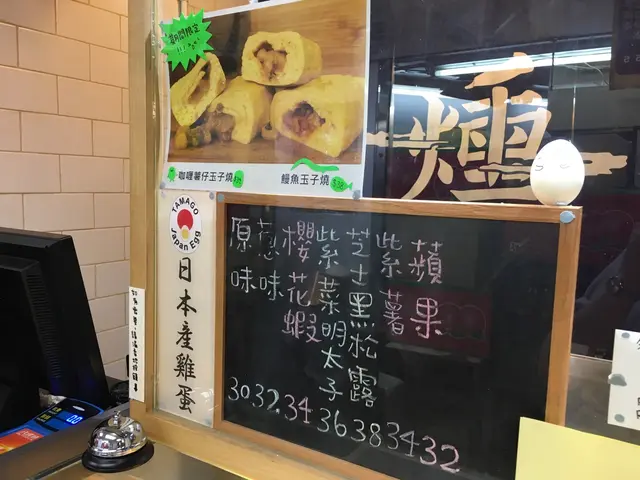 期間限定
咖喱薯仔玉子燒
鰻魚玉子燒
TAMAGO
Japan Egg
日本產雞蛋
原味
蔥味
櫻花蝦
紫菜明太子
芝士黑松露
紫薯
蘋果
30 32 34 36 38 34 32